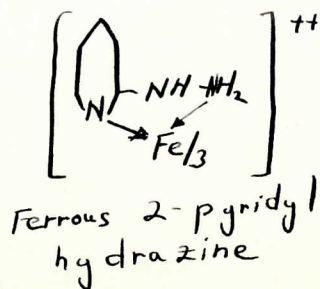 ++
NH NH2
N
Fe/3
Ferrous 2-pyridyl
hydrazine